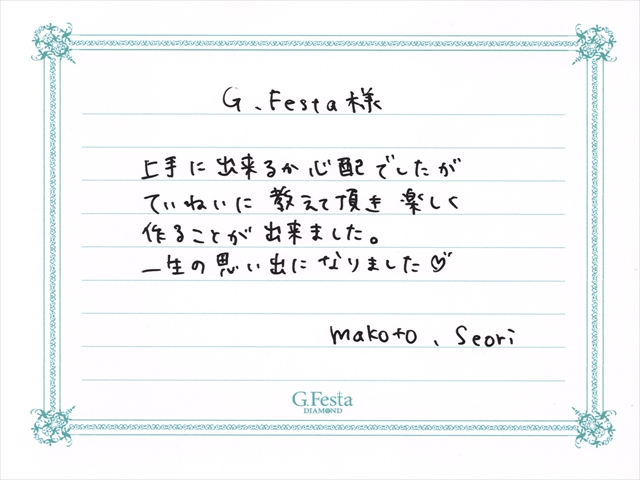 G.Festa様
上手に出来るか心配でしたが
ていねいに教えて頂き楽しく
作ることが出来ました。
一生の思い出になりました♡
makoto、Seori
G.Festa
DIAMOND